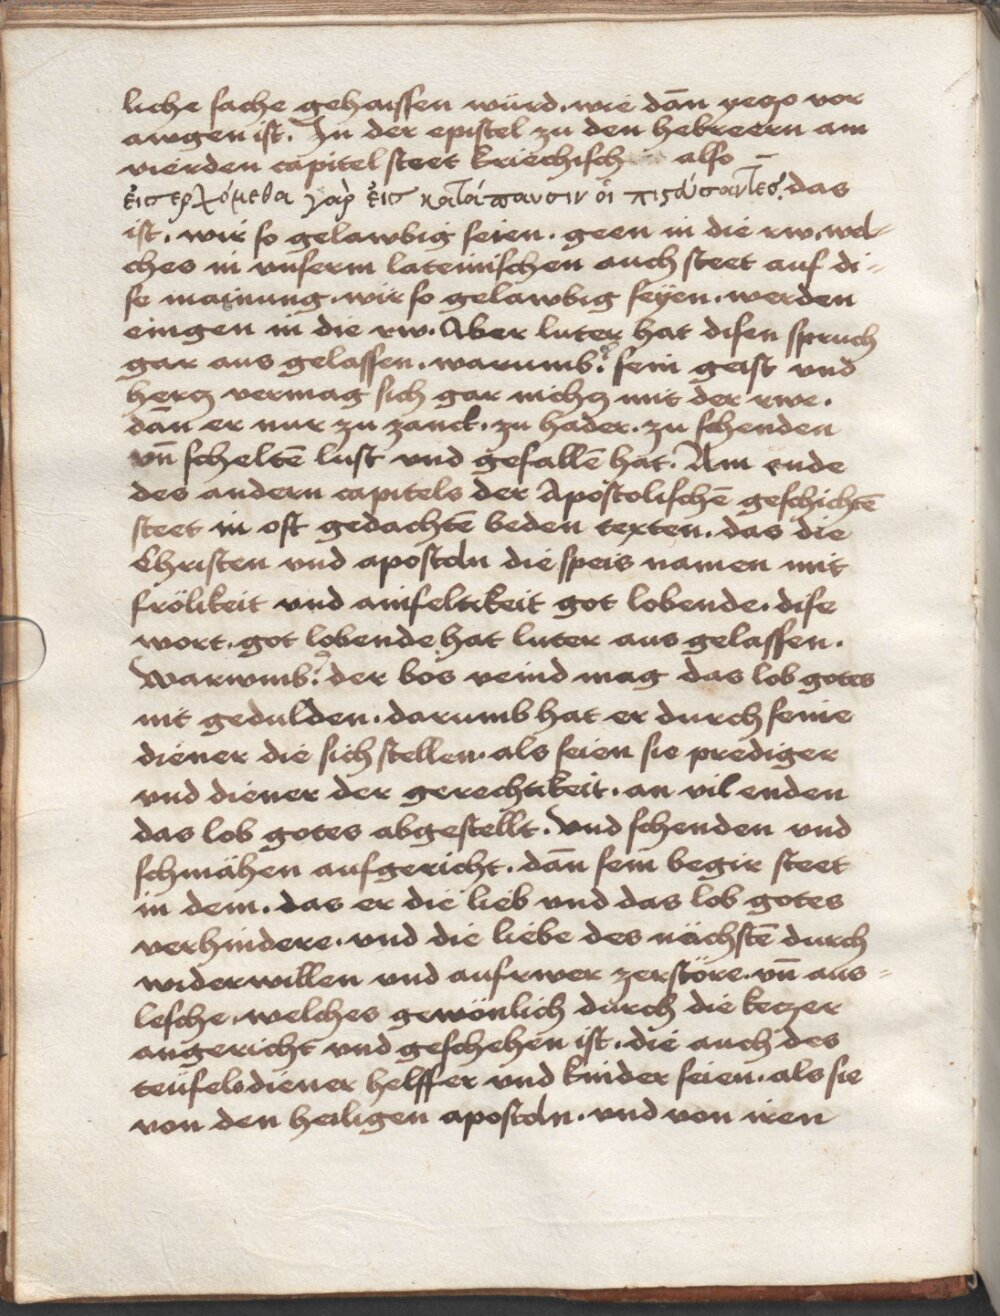 liche sache gehaissen würd. wie dan̄ yeczo vor
awgen ist. In der epistel zu den hebreern am
vierden capitel steet kriechisch also
εἰσερχόμεθα γαρ̀ εἰς κατάπαυσιν οἱ πιϛεύσαντες. das
ist. wir so gelawbig seien. geen in die rw. wel-
ches in vnserm lateinischen auch steet auf di-
se mainung. wir so gelawbig seyen. werden
eingen in die rw. Aber luter hat disen spruch
gar aus gelassen. warumb? sein geist vnd
hercz vermag sich gar nichcz mit der rwe.
dan̄ er nur zu zanck. zu hader. zu schenden
vn̄ scheltē lust vnd gefallē hat. Am ende
des andern capitels der Apostolischē geschichtē
steet in oft gedachtē beden texten. das die
Christen vnd aposteln die speis namen mit
frölikeit vnd ainfeltikeit got lobende. dise
wort. got lobende hat luter aus gelassen.
Warumb? der bös veind mag das lob gotes
nit gedulden. darumb hat er durch seine
diener die sich stellen. als seien sie prediger
vnd diener der gerechtikeit. an vil enden
das lob gotes abgestellt. Vnd schenden vnd
schmähen aufgericht. dan̄ sein begir steet
in dem. das er die lieb vnd das lob gotes
verhindere. vnd die liebe des nächstē durch
widerwillen vnd aufrwer zerstöre. vn̄ aus-
lesche. welches gewönlich durch die keczer
angericht vnd geschehen ist. die auch des
teüfels diener helffer vnd kinder seien. als sie
von den heiligen aposteln. vnd von iren